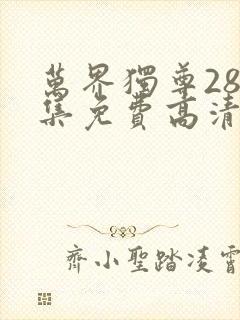 萬界獨尊28
集免費高清
齊小聖踏凌霄